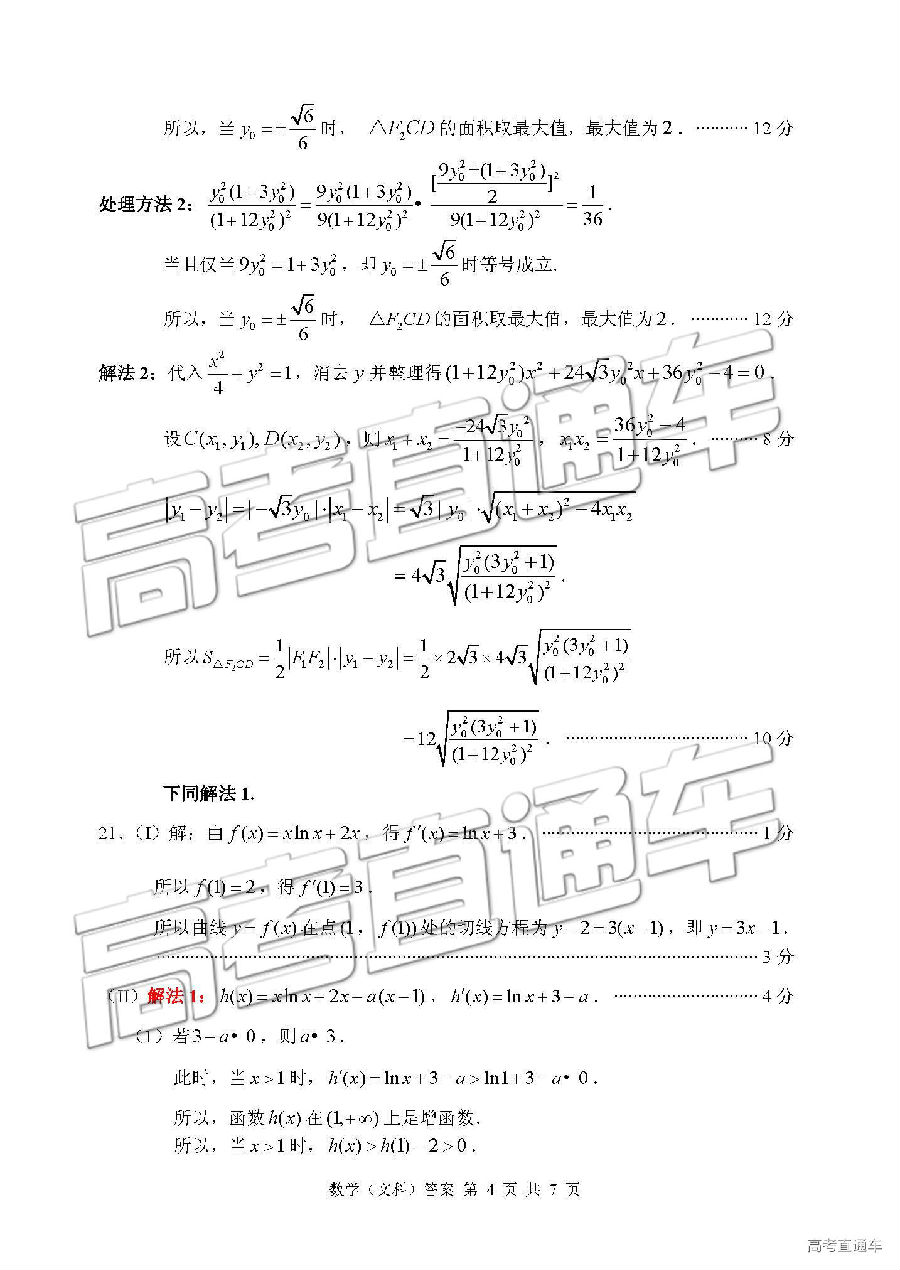 所以，当 y₀ = −√6/6 时， △F₂CD 的面积取最大值，最大值为 2 ． ………… 12 分
处理方法 2： y₀²(1−3y₀²)/(1+12y₀²)² = 9y₀²(1+3y₀²)/9(1+12y₀²)² • [(9y₀²−(1−3y₀²))/2]²/9(1−12y₀²)² = 1/36 ．
当且仅当 9y₀² − 1+3y₀² ，即 y₀ = ±√6/6 时等号成立.
所以，当 y₀ = ±√6/6 时， △F₂CD 的面积取最大值，最大值为 2 ． ………… 12 分
解法 2： 代入 x²/4 − y² = 1，消去 y 并整理得 (1+12y₀²)x² + 24√3y₀²x + 36y₀² − 4 = 0 .
设 C(x₁, y₁), D(x₂, y₂)，则 x₁ + x₂ = −24√3y₀²/1+12y₀² ， x₁x₂ = 36y₀² − 4/1+12y₀² ． ………… 8 分
|y₁ − y₂| = |−√3y₀| · |x₁ − x₂| = √3 | y₀ · √(x₁ + x₂)² − 4x₁x₂
= 4√3 √y₀²(3y₀² + 1)/(1+12y₀²)² ．
所以 S△F₂CD = 1/2 |F₁F₂| · |y₁ − y₂| = 1/2 × 2√3 × 4√3 √y₀²(3y₀² + 1)/(1−12y₀²)²
−12 √y₀²(3y₀² + 1)/(1−12y₀²)² ． ………… 10 分
下同解法 1.
21．（I）解：由 f(x) = x ln x + 2x，得 f′(x) = ln x + 3 ． ………… 1 分
所以 f(1) = 2，得 f′(1) = 3 ．
所以曲线 y − f(x) 在点 (1， f(1)) 处的切线方程为 y − 2 − 3(x − 1)，即 y − 3x − 1 ．
………… 3 分
（II）解法 1： h(x) = x ln x − 2x − a(x − 1) ， h′(x) = ln x + 3 − a ． ………… 4 分
（1）若 3 − a • 0 ，则 a • 3 .
此时，当 x > 1 时， h′(x) − ln x + 3 − a > ln1 + 3 − a • 0 ．
所以，函数 h(x) 在 (1, +∞) 上是增函数.
所以，当 x > 1 时， h(x) > h(1) − 2 > 0 ．
数学（文科）答案 第 4 页 共 7 页
高考直通车
高考直通车
高考直通车